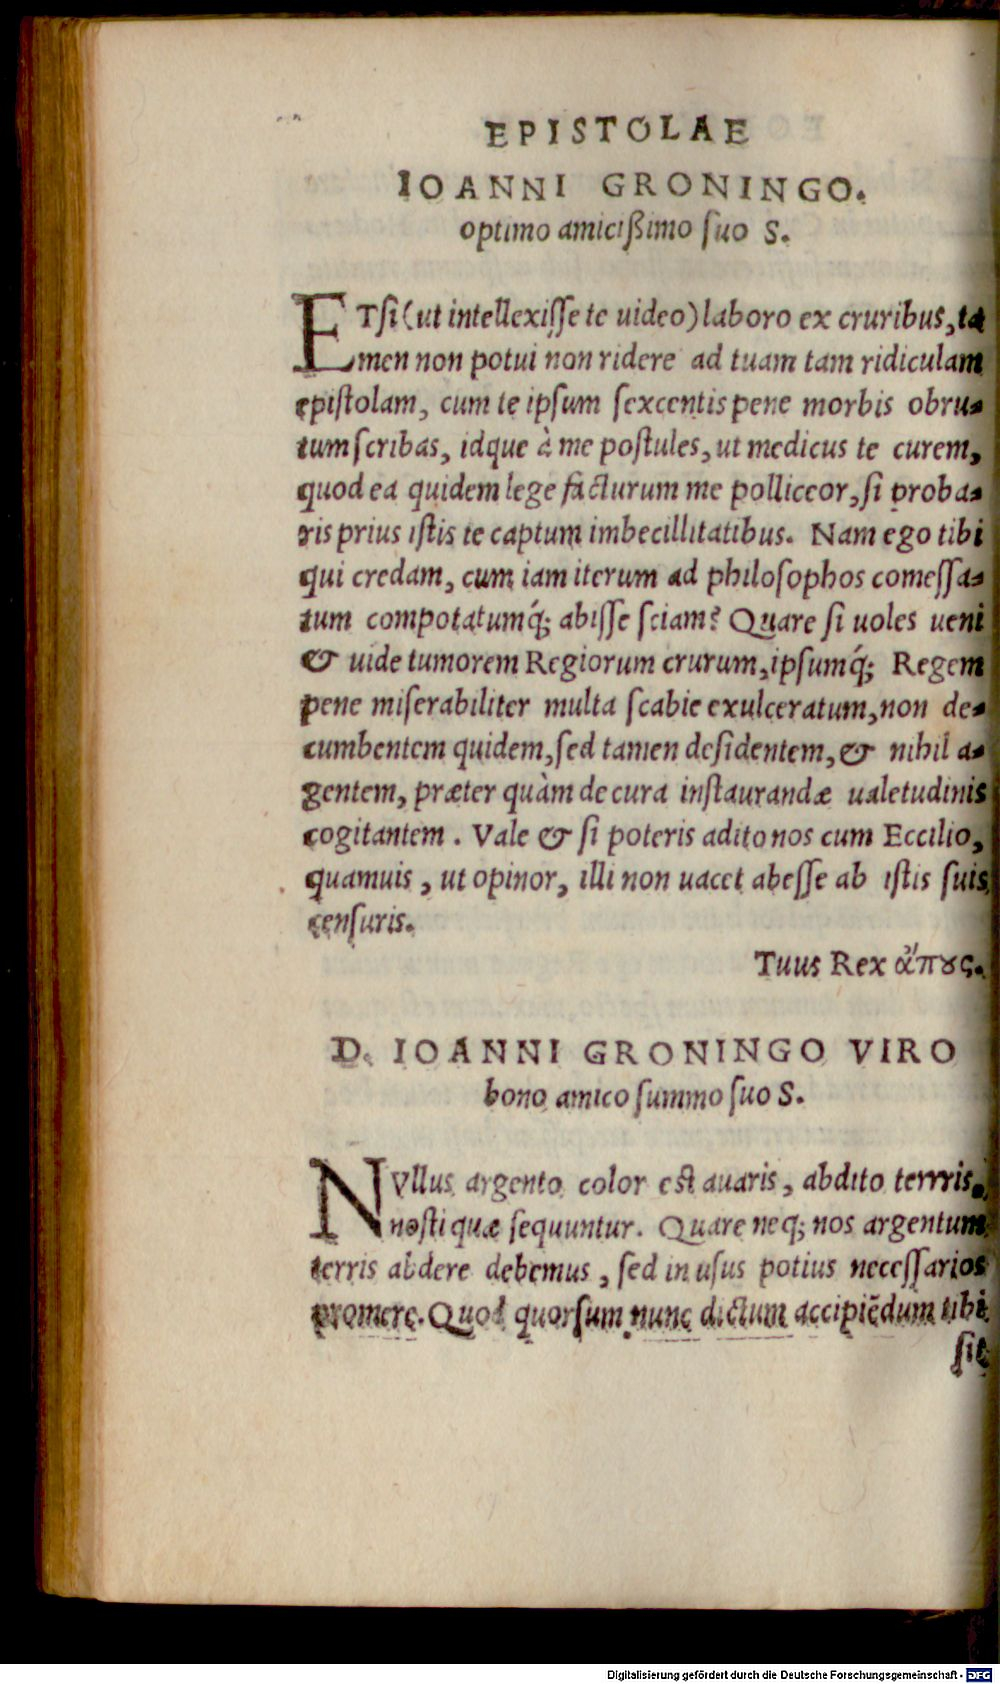 EPISTOLAE
IOANNI GRONINGO.
optimo amicißimo suo S.
ETsi (ut intellexisse te uideo) laboro ex cruribus, ta
men non potui non ridere ad tuam tam ridiculam
epistolam, cum te ipsum sexcentis pene morbis obru-
tum scribas, idque à me postules, ut medicus te curem,
quod ea quidem lege facturum me polliceor, si proba-
ris prius istis te captum imbecillitatibus. Nam ego tibi
qui credam, cum iam iterum ad philosophos comessa-
tum compotatumq́; abisse sciam? Quare si uoles ueni
& uide tumorem Regiorum crurum, ipsumq́; Regem
pene miserabiliter multa scabie exulceratum, non de-
cumbentem quidem, sed tamen desidentem, & nihil a-
gentem, præter quàm de cura instaurandæ ualetudinis
cogitantem. Vale & si poteris adito nos cum Eccilio,
quamuis, ut opinor, illi non uacet abesse ab istis suis
censuris.
Tuus Rex ἄπȣς.
D. IOANNI GRONINGO VIRO
bono amico summo suo S.
NVllus argento color est auaris, abdito terrris,
nosti quæ sequuntur. Quare neq; nos argentum
terris abdere debemus, sed in usus potius necessarios
promere. Quod quorsum nunc dictum accipiẽdum tibi
sit
Digitalisierung gefördert durch die Deutsche Forschungsgemeinschaft - DFG